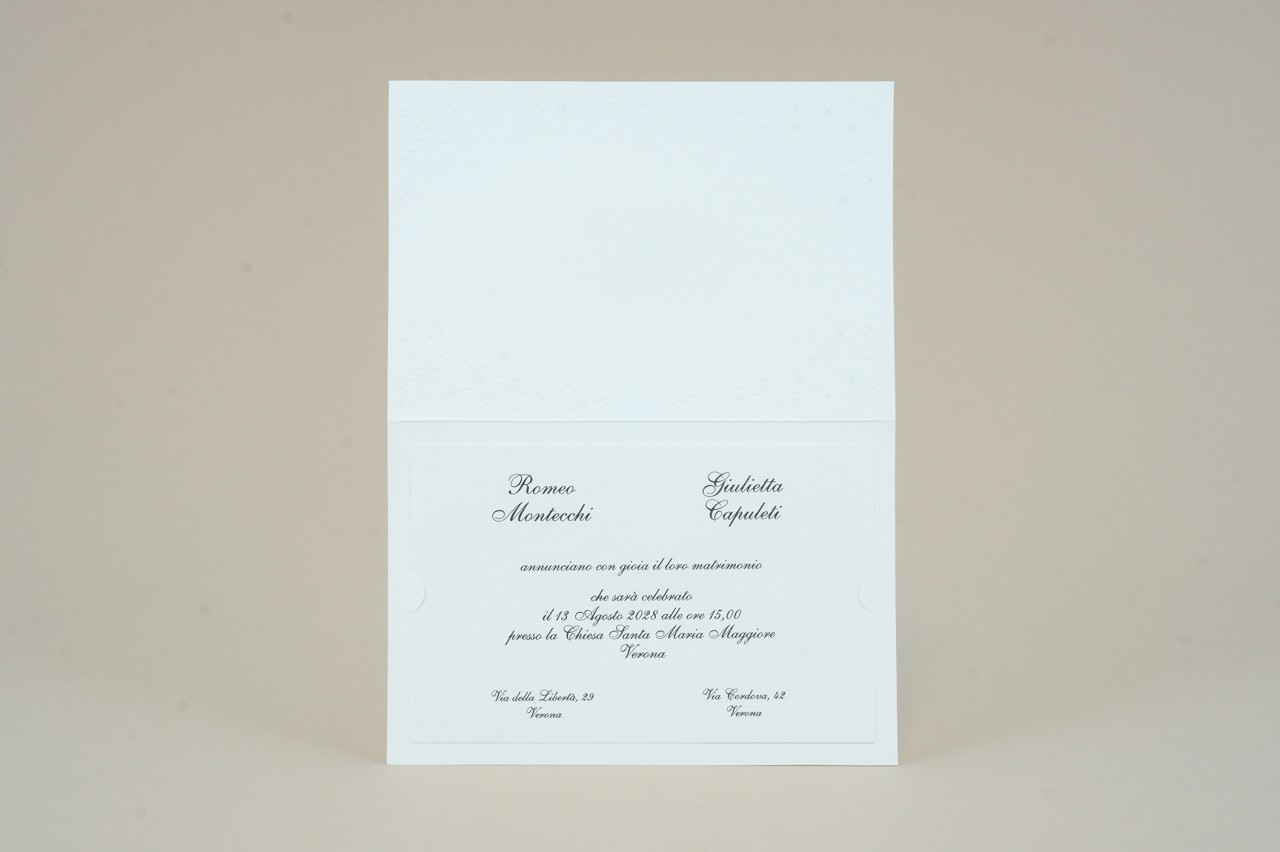 Romeo
Montecchi
Giulietta
Capuleti
annunciano con gioia il loro matrimonio
che sarà celebrato
il 13 Agosto 2028 alle ore 15,00
presso la Chiesa Santa Maria Maggiore
Verona
Via della Libertà, 29
Verona
Via Cordova, 42
Verona